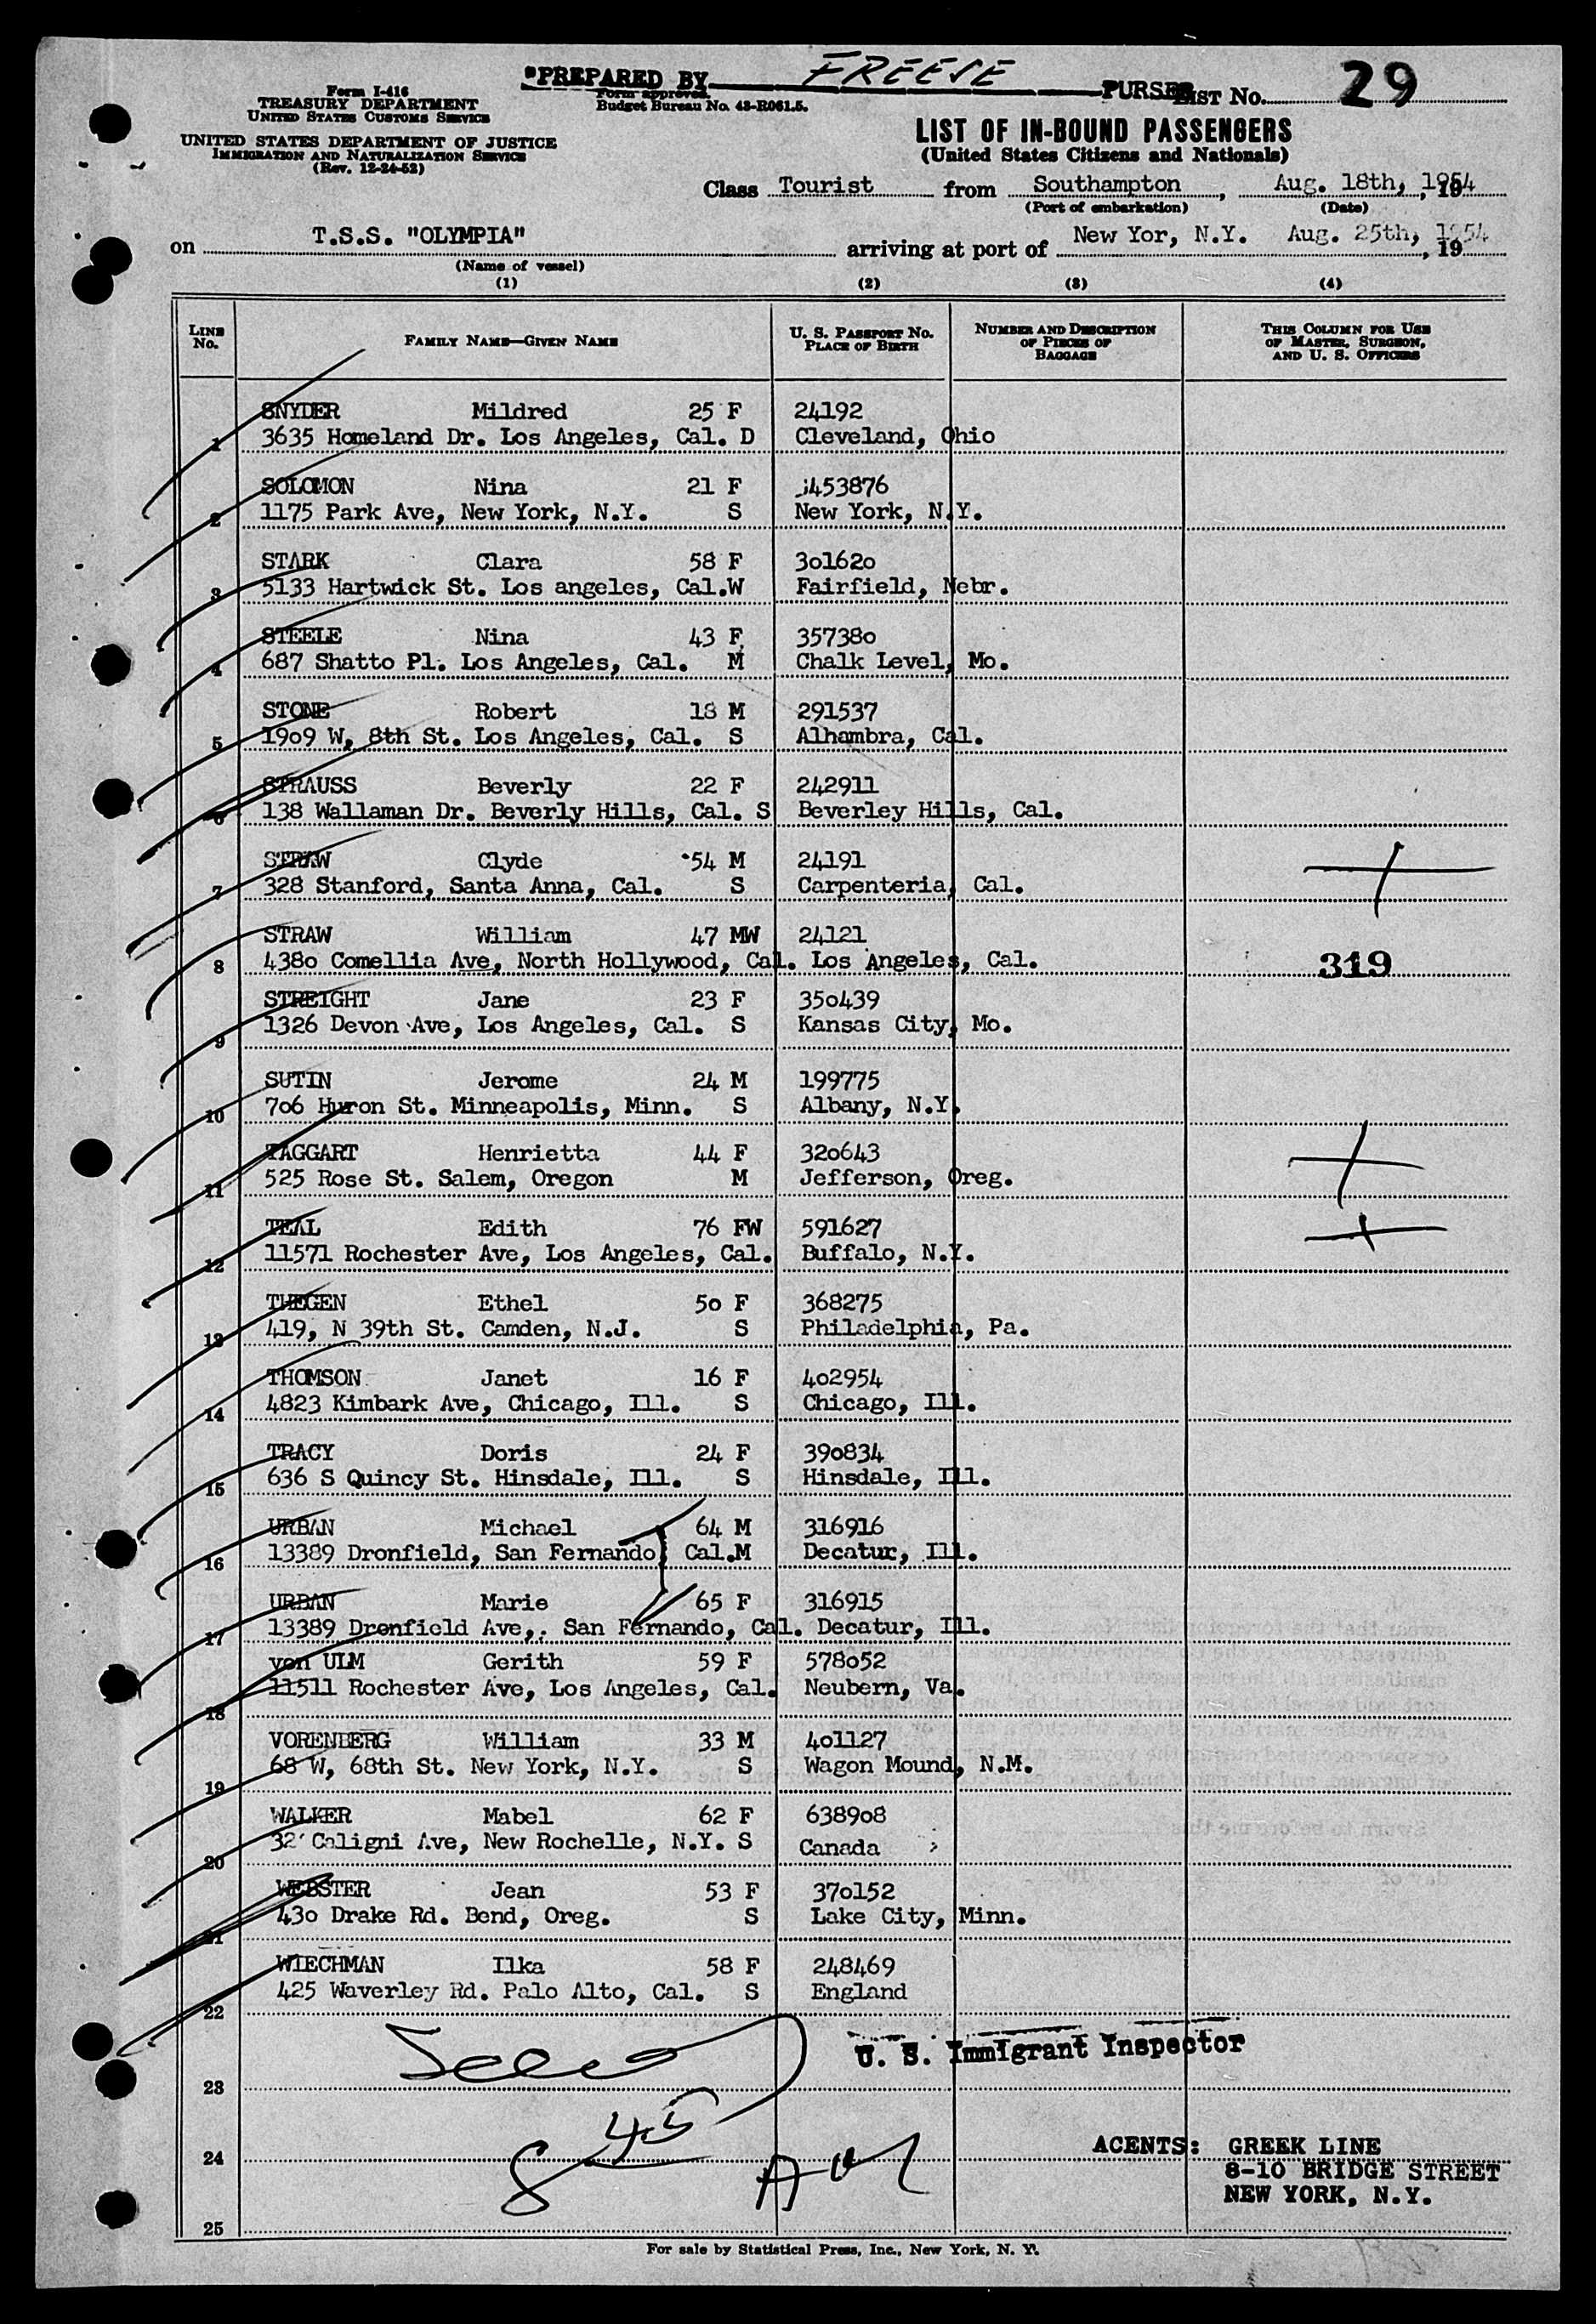 "PREPARED BY FREESE PURSER
Form I-416
TREASURY DEPARTMENT
UNITED STATES CUSTOMS SERVICE
Form approved.
Budget Bureau No. 43-R061.5.
LIST No. 29
UNITED STATES DEPARTMENT OF JUSTICE
IMMIGRATION AND NATURALIZATION SERVICE
(Rev. 12-24-52)
LIST OF IN-BOUND PASSENGERS
(United States Citizens and Nationals)
Class Tourist from Southampton, Aug. 18th, 1954
(Port of embarkation) (Date)
on T.S.S. "OLYMPIA" arriving at port of New Yor, N.Y. Aug. 25th, 1954
(Name of vessel)
(1) (2) (3) (4)
LINE No. FAMILY NAME—GIVEN NAME U. S. PASSPORT No. PLACE OF BIRTH NUMBER AND DESCRIPTION OF PIECES OF BAGGAGE THIS COLUMN FOR USE OF MASTER, SURGEON, AND U. S. OFFICERS
SNYDER Mildred 25 F 24192
1 3635 Homeland Dr. Los Angeles, Cal. D Cleveland, Ohio
SOLOMON Nina 21 F 453876
2 1175 Park Ave, New York, N.Y. S New York, N.Y.
STARK Clara 58 F 301620
3 5133 Hartwick St. Los angeles, Cal.W Fairfield, Nebr.
STEELE Nina 43 F 357380
4 687 Shatto Pl. Los Angeles, Cal. M Chalk Level, Mo.
STONE Robert 18 M 291537
5 1909 W, 8th St. Los Angeles, Cal. S Alhambra, Cal.
STRAUSS Beverly 22 F 242911
6 138 Wallaman Dr. Beverly Hills, Cal. S Beverley Hills, Cal.
STRAW Clyde 54 M 24191
7 328 Stanford, Santa Anna, Cal. S Carpenteria, Cal.
STRAW William 47 MW 24121
8 4380 Comellia Ave, North Hollywood, Cal. Los Angeles, Cal. 319
STREIGHT Jane 23 F 350439
9 1326 Devon Ave, Los Angeles, Cal. S Kansas City, Mo.
SUTIN Jerome 24 M 199775
10 706 Huron St. Minneapolis, Minn. S Albany, N.Y.
TAGGART Henrietta 44 F 320643
11 525 Rose St. Salem, Oregon M Jefferson, Oreg.
TEAL Edith 76 FW 591627
12 11571 Rochester Ave, Los Angeles, Cal. Buffalo, N.Y.
THEGEN Ethel 50 F 368275
13 419, N 39th St. Camden, N.J. S Philadelphia, Pa.
THOMSON Janet 16 F 402954
14 4823 Kimbark Ave, Chicago, Ill. S Chicago, Ill.
TRACY Doris 24 F 390834
15 636 S Quincy St. Hinsdale, Ill. S Hinsdale, Ill.
URBAN Michael 64 M 316916
16 13389 Dronfield, San Fernando, Cal.M Decatur, Ill.
URBAN Marie 65 F 316915
17 13389 Dronfield Ave,. San Fernando, Cal. Decatur, Ill.
von ULM Gerith 59 F 578052
18 11511 Rochester Ave, Los Angeles, Cal. Neubern, Va.
VORENBERG William 33 M 401127
19 68 W, 68th St. New York, N.Y. S Wagon Mound, N.M.
WALKER Mabel 62 F 638908
20 32 Caligni Ave, New Rochelle, N.Y. S Canada
WEBSTER Jean 53 F 370152
21 430 Drake Rd. Bend, Oreg. S Lake City, Minn.
WIECHMAN Ilka 58 F 248469
22 425 Waverley Rd. Palo Alto, Cal. S England
U. S. Immigrant Inspector
23
8 45 AM
24
AGENTS: GREEK LINE
8-10 BRIDGE STREET
NEW YORK, N.Y.
25
For sale by Statistical Press, Inc., New York, N. Y.